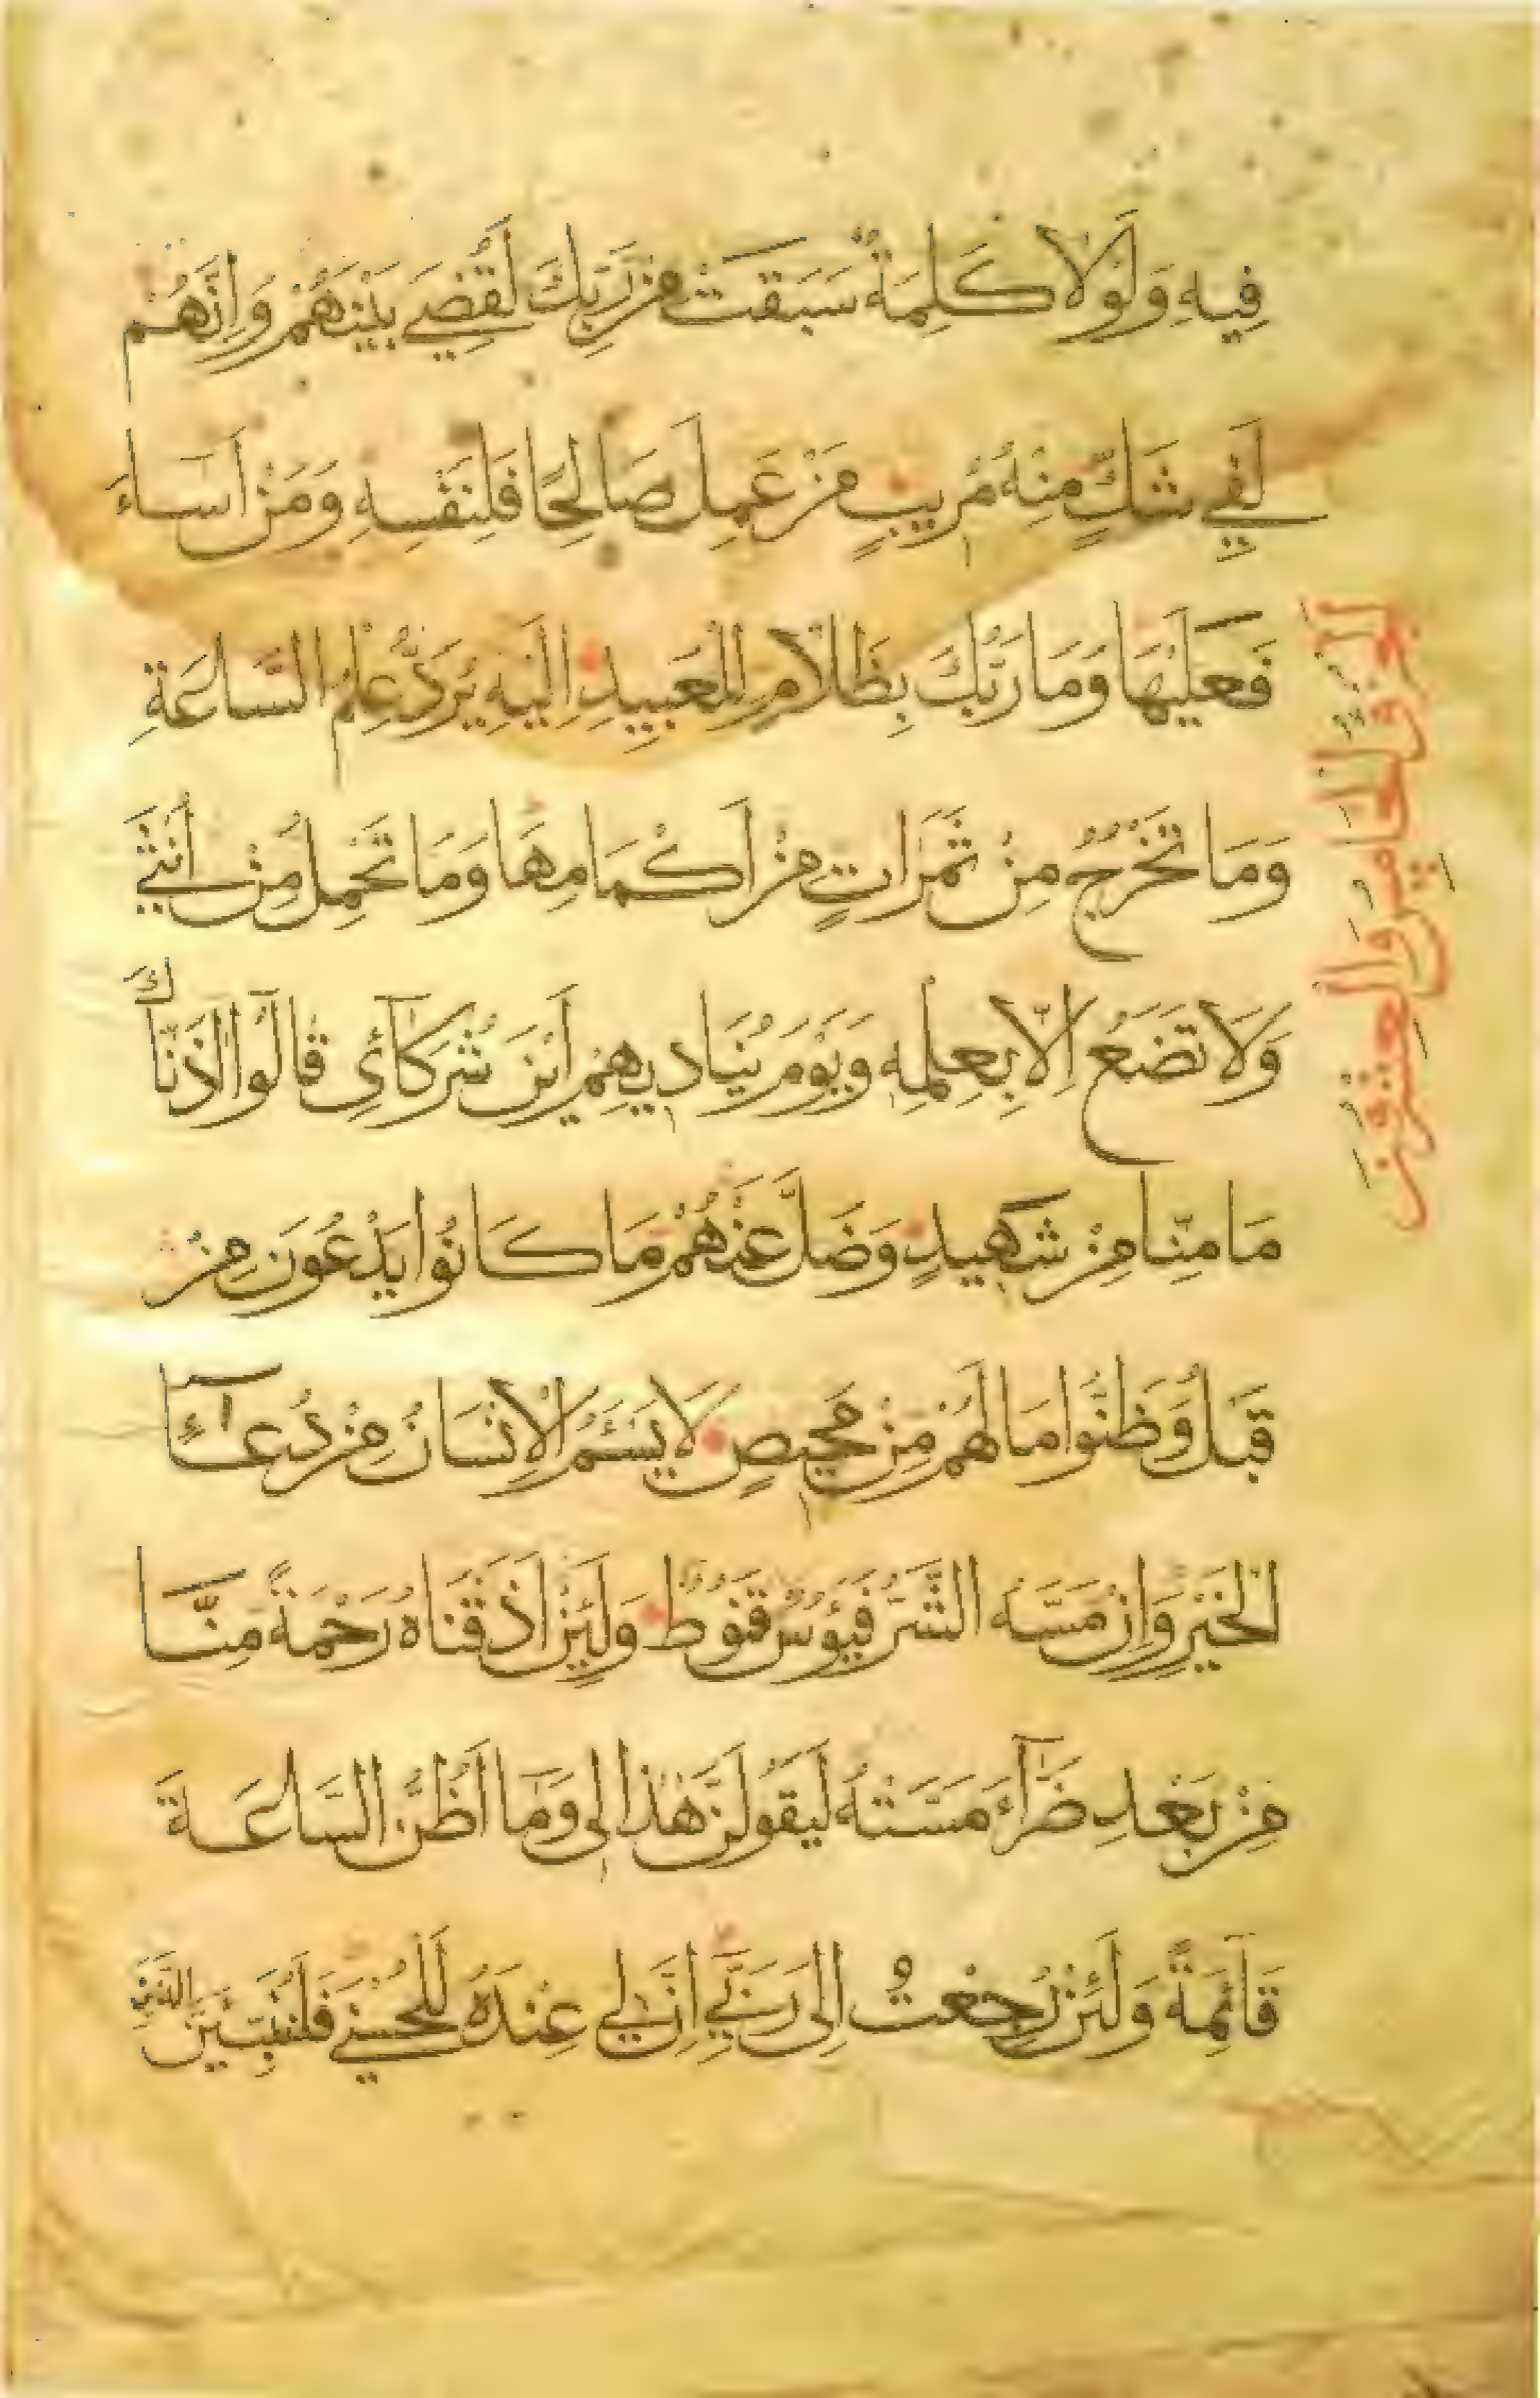 فِيهِ وَلَوْلَا كَلِمَةٌ سَبَقَتْ مِنْ رَبِّكَ لَقُضِيَ بَيْنَهُمْ وَإِنَّهُمْ
لَفِي شَكٍّ مِنْهُ مُرِيبٍ مَنْ عَمِلَ صَالِحًا فَلِنَفْسِهِ وَمَنْ اَسَاءَ
فَعَلَيْهَا وَمَا رَبُّكَ بِظَلَّامٍ لِلْعَبِيدِ اِلَيْهِ يُرَدُّ عِلْمُ السَّاعَةِ
وَمَا تَخْرُجُ مِنْ ثَمَرَاتٍ مِنْ اَكْمَامِهَا وَمَا تَحْمِلُ مِنْ اُنْثَى
وَلَا تَضَعُ اِلَّا بِعِلْمِهِ وَيَوْمَ يُنَادِيهِمْ اَيْنَ شُرَكَآئِى قَالُوا اٰذَنَّاكَ
مَا مِنَّا مِنْ شَهِيدٍ وَضَلَّ عَنْهُمْ مَا كَانُوا يَدْعُونَ مِنْ
قَبْلُ وَظَنُّوا مَا لَهُمْ مِنْ مَحِيصٍ لَا يَسْئَمُ الْاِنْسَانُ مِنْ دُعَآءِ
الْخَيْرِ وَاِنْ مَسَّهُ الشَّرُّ فَيَؤُسٌ قَنُوطٌ وَلَئِنْ اَذَقْنَاهُ رَحْمَةً مِنَّا
مِنْ بَعْدِ ضَرَّآءَ مَسَّتْهُ لَيَقُولَنَّ هٰذَا لِى وَمَآ اَظُنُّ السَّاعَةَ
قَآئِمَةً وَلَئِنْ رُجِعْتُ اِلَى رَبِّي اِنَّ لِي عِنْدَهُ لَلْحُسْنَى فَلَنُنَبِّئَنَّ الَّذِينَ
الجزؤ الخامس والعشرون